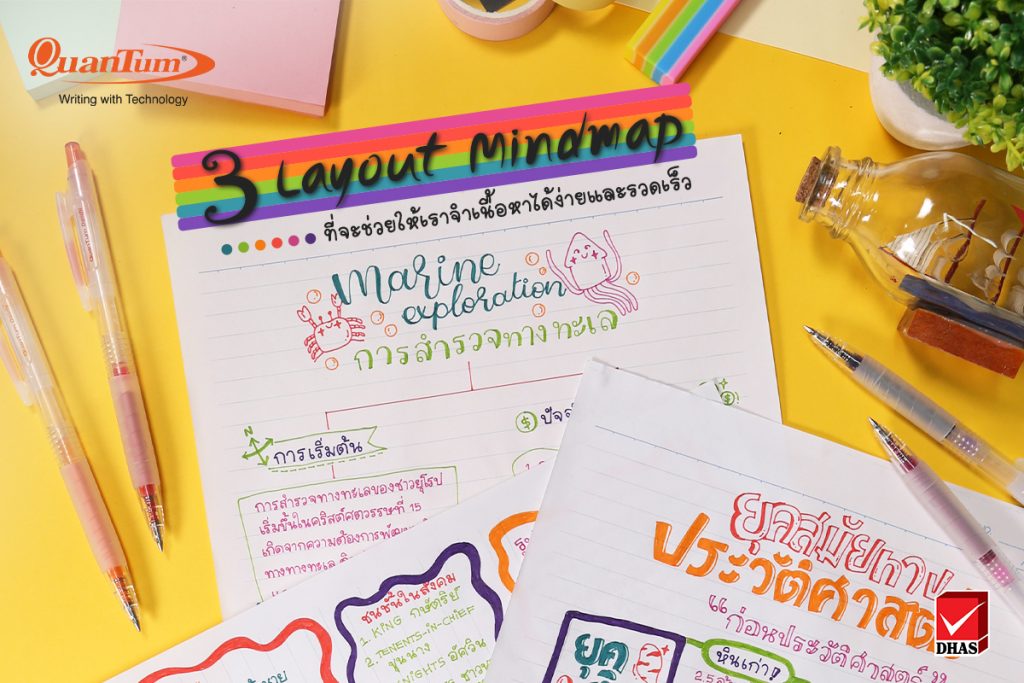 QuanTum®
Writing with Technology
3 Layout Mindmap
ที่จะช่วยให้เราจำเนื้อหาได้ง่ายและรวดเร็ว
Marine
exploration
การสำรวจทางทะเล
N
การเริ่มต้น
$
$
การสำรวจทางทะเลของชาวยุโรป
เริ่มขึ้นในคริสต์ศตวรรษที่ 15
เกิดจากความต้องการ
ชนชั้นในสังคม
1. KING กษัตริย์
2. TENENTS-IN-CHIEF
ขุนนาง
อัศวิน
ยุคสมัยทาง
ประวัติศาสต
ก่อนประวัติศาสตร์
ยุค
หินเก่า
DHAS